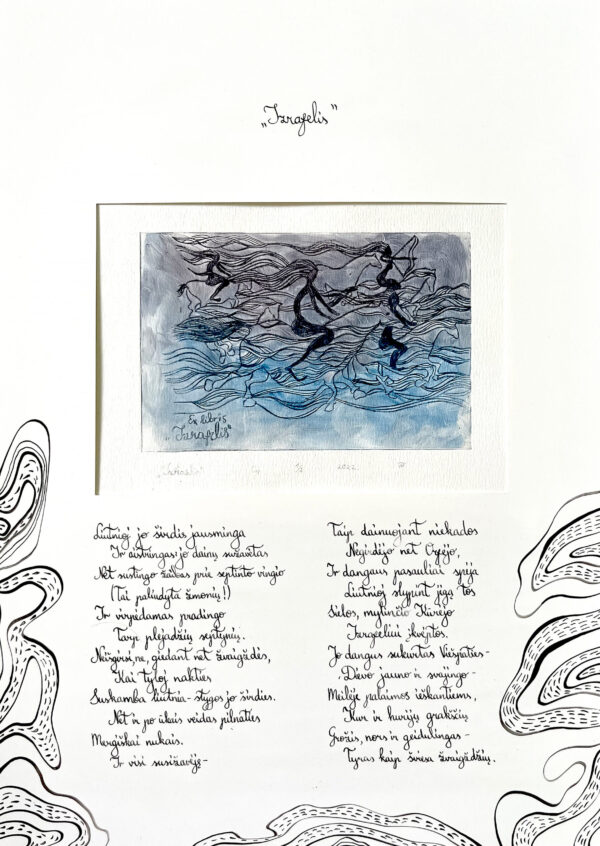 „Izrafelis"
Ex libris
„Izrafelis"
2022
Liutnioj jo širdis jausminga
Ir aistringas: jo dainų sužavėtas
Net sustingo žaibas prie septinto vingio
(Tai paliudyta žmonių!)
Ir virpėdamas pradingo
Tarp plejadžių septynių.
giedant net žvaigždės,
Kai tyloj nakties
Suskamba liutnia-stygos jo širdies.
Net ir po ūkais veidas pilnaties
Mergiškai nukais.
Ir visi susižavėję-
Taip dainuojant niekados
Negirdėjo net Orfėjo,
Ir dangaus pasauliai spėja
Liutnioj slypint jėgą tos
Sielos, mylinčio Kūrėjo
Izrafeliui įkvėptos.
Jo dangus sukurtas Viešpaties-
Dievo jauno ir svajingo-
Meilėje palaimos ieškantiems,
Kur ir hurijų grakščių
Grožis, nors ir geidulingas-
Tyras kaip šviesa žvaigždžių.